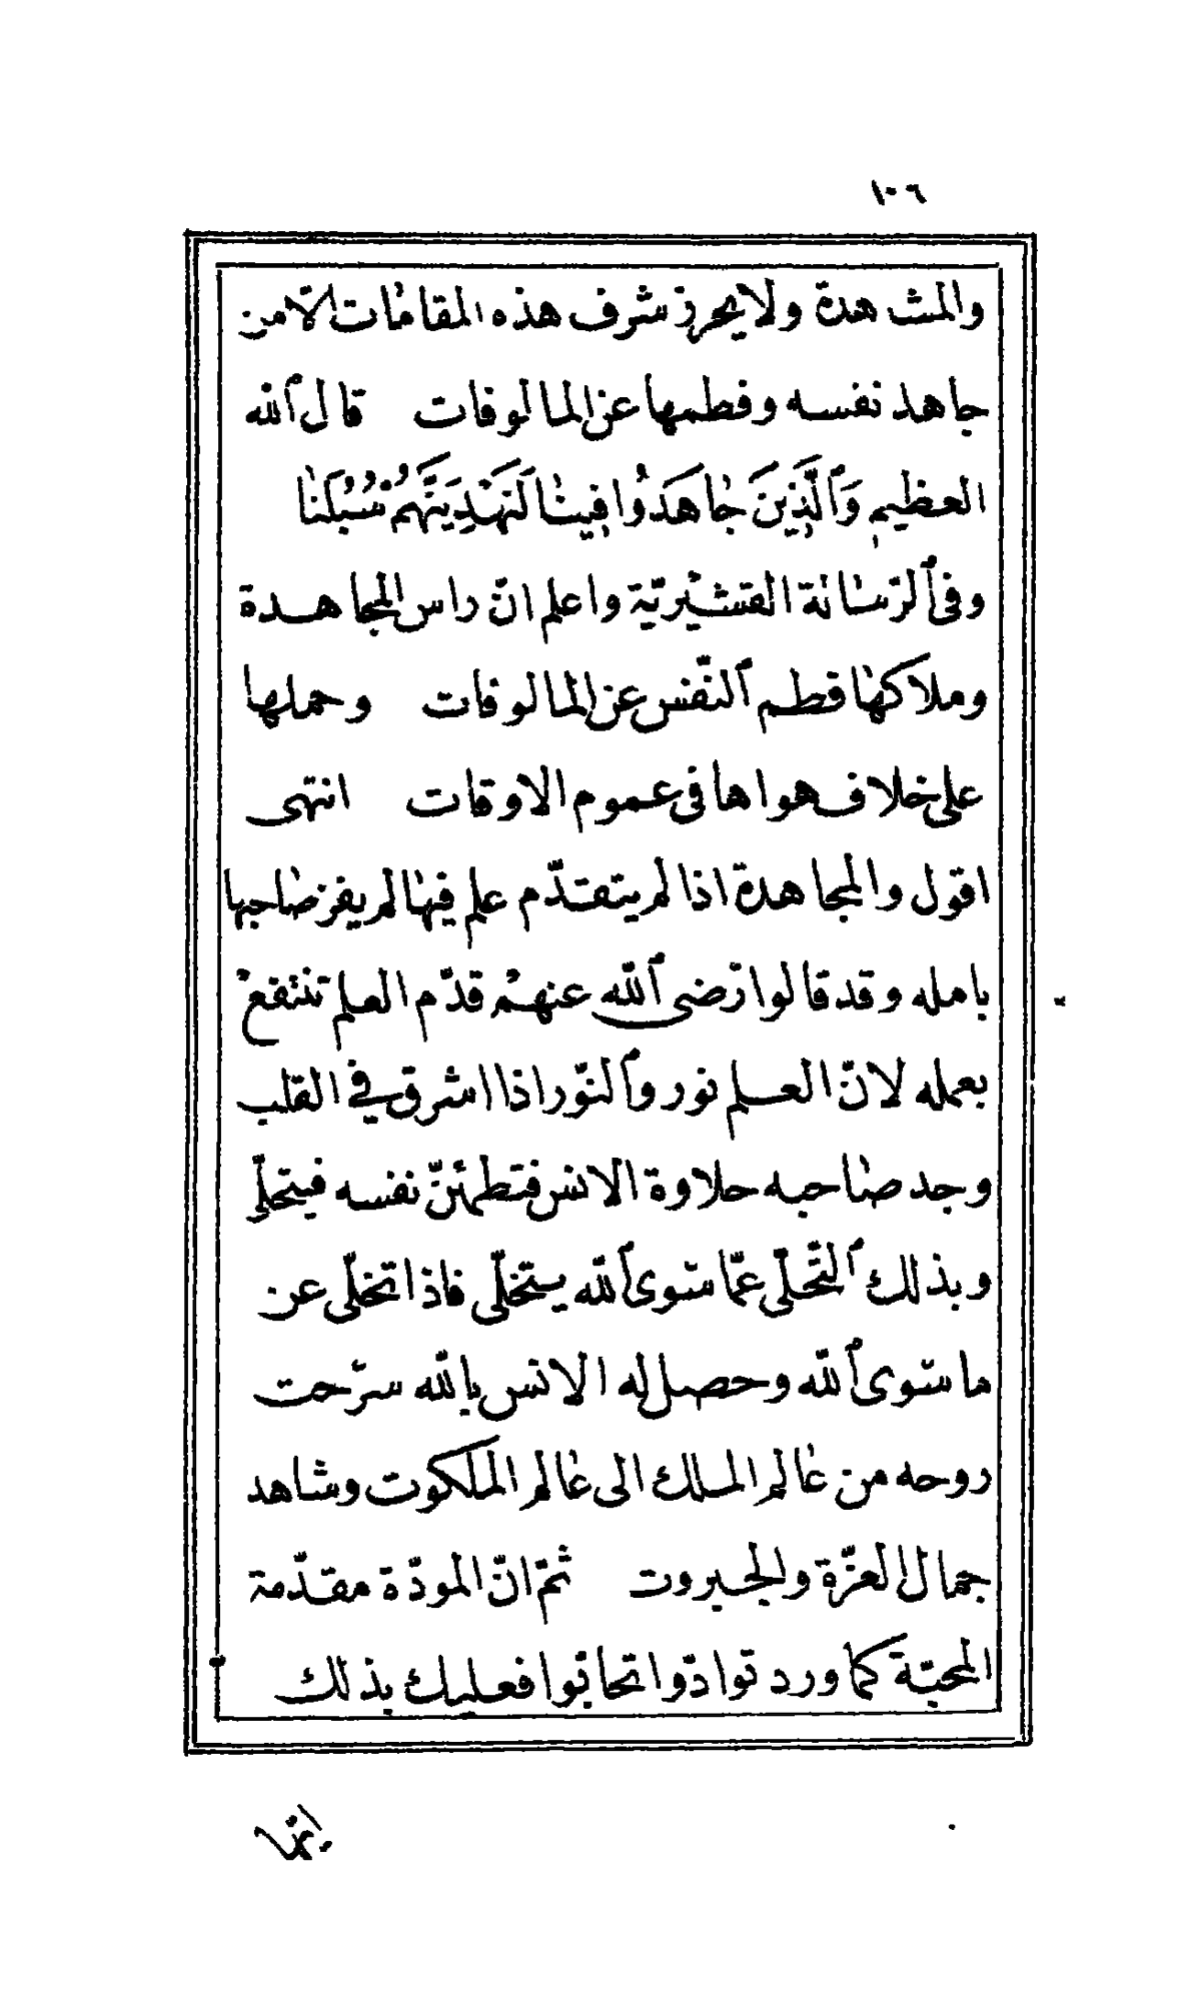 ١٠٦
والمشـاهدة ولا يحرز شرف هذه المقامات الّا من
جاهد نفسه وفطمها عن المالوفات قال ٱلله
العظيم وَٱلَّذِينَ جَاهَدُوا فِينَا لَنَهْدِيَنَّهُمْ سُبُلَنَا
وفى ٱلرّسالة القشيريّة واعلم انّ راس المجاهدة
وملاكها فطم ٱلنّفس عن المالوفات وحملها
على خلاف هواها فى عموم الاوقات انتهى
اقول والمجاهدة اذا لم يتقدّم علم فيها لم يفز صاحبها
بامله وقد قالوا رضى ٱللّه عنهم قدّم العلم تنتفع
بعمله لانّ العلم نور وٱلنّور اذا اشرق في القلب
وجد صاحبه حلاوة الانس فتطمئنّ نفسه فيتحلّى
وبذلك ٱلتّحلّى عمّا سوى ٱللّه يتخلّى فاذا تخلّى عن
ما سوى ٱللّه وحصل له الانس باللّه سرّحت
روحه من عالم الملك الى عالم الملكوت وشاهد
جمال العزّة والجبروت ثمّ انّ المودّة مقدّمة
المحبّة كما ورد توادّوا تحابّوا فعليك بذلك
انّما